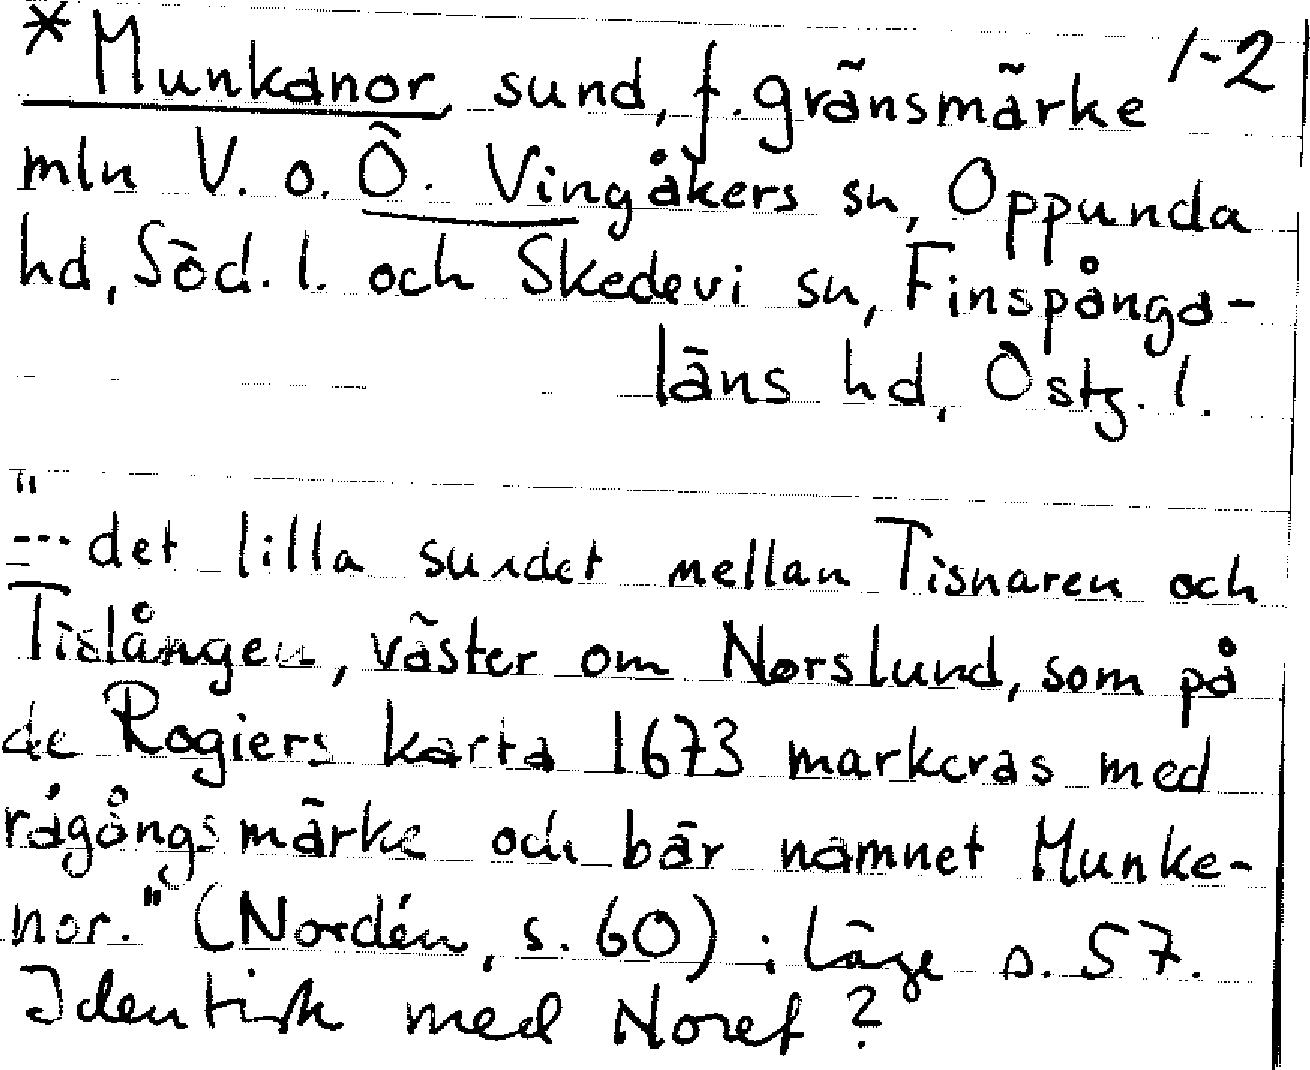 *Munkanor, sund, f. gränsmärke 1-2
mln V. o. Ö. Vingåkers sn, Oppunda
hd, Söd. l. och Skedevi sn, Finspånga-
läns hd, Östg. l.
"
--- det lilla sundet mellan Tisnaren och
Tislången, väster om Norslund, som på
de Rogiers karta 1673 markeras med
rågångsmärke och bär namnet Munke-
nor." (Nordén, s. 60); läge s. 57.
Identisk med Noret?